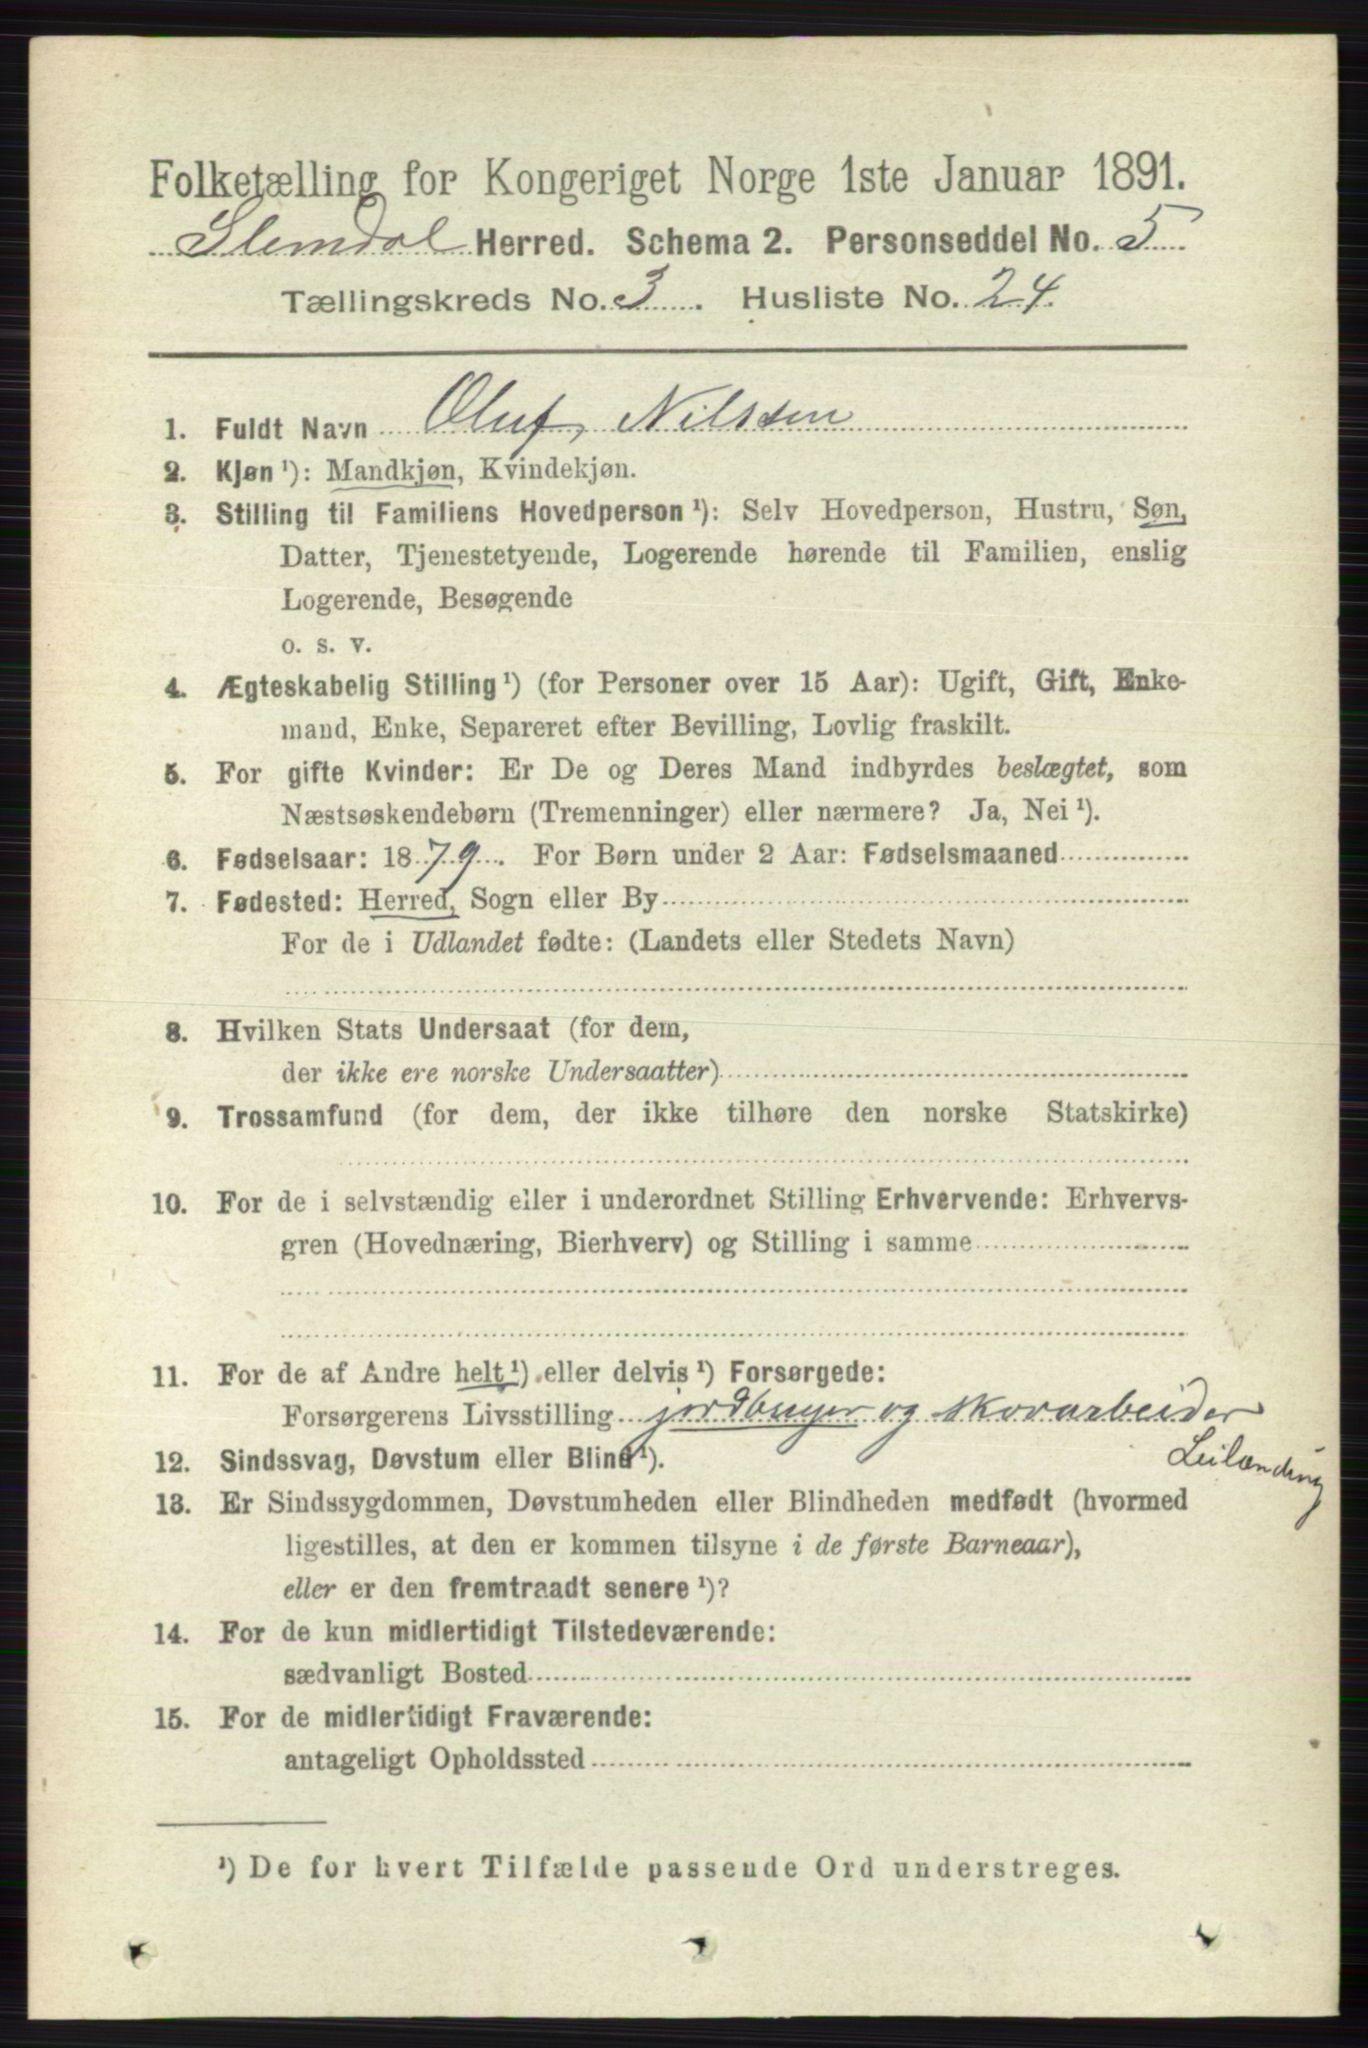 Folketælling for Kongeriget Norge 1ste Januar 1891.
Slemdal Herred. Schema 2. Personseddel No. 5
Tællingskreds No. 3. Husliste No. 24.
1. Fuldt Navn Oluf Nilssen
2. Kjøn ¹): Mandkjøn, Kvindekjøn.
3. Stilling til Familiens Hovedperson ¹): Selv Hovedperson, Hustru, Søn,
Datter, Tjenestetyende, Logerende hørende til Familien, enslig
Logerende, Besøgende
o. s. v.
4. Ægteskabelig Stilling ¹) (for Personer over 15 Aar): Ugift, Gift, Enke-
mand, Enke, Separeret efter Bevilling, Lovlig fraskilt.
5. For gifte Kvinder: Er De og Deres Mand indbyrdes beslægtet, som
Næstsøskendebørn (Tremenninger) eller nærmere? Ja, Nei ¹).
6. Fødselsaar: 1879. For Børn under 2 Aar: Fødselsmaaned
7. Fødested: Herred, Sogn eller By
For de i Udlandet fødte: (Landets eller Stedets Navn)
8. Hvilken Stats Undersaat (for dem,
der ikke ere norske Undersaatter)
9. Trossamfund (for dem, der ikke tilhøre den norske Statskirke)
10. For de i selvstændig eller i underordnet Stilling Erhvervende: Erhvervs-
gren (Hovednæring, Bierhverv) og Stilling i samme
11. For de af Andre helt ¹) eller delvis ¹) Forsørgede:
Forsørgerens Livsstilling jordbruger og skovarbeider
Leilænding
12. Sindssvag, Døvstum eller Blind ¹).
13. Er Sindssygdommen, Døvstumheden eller Blindheden medfødt (hvormed
ligestilles, at den er kommen tilsyne i de første Barneaar),
eller er den fremtraadt senere ¹)?
14. For de kun midlertidigt Tilstedeværende:
sædvanligt Bosted
15. For de midlertidigt Fraværende:
antageligt Opholdssted
¹) De for hvert Tilfælde passende Ord understreges.